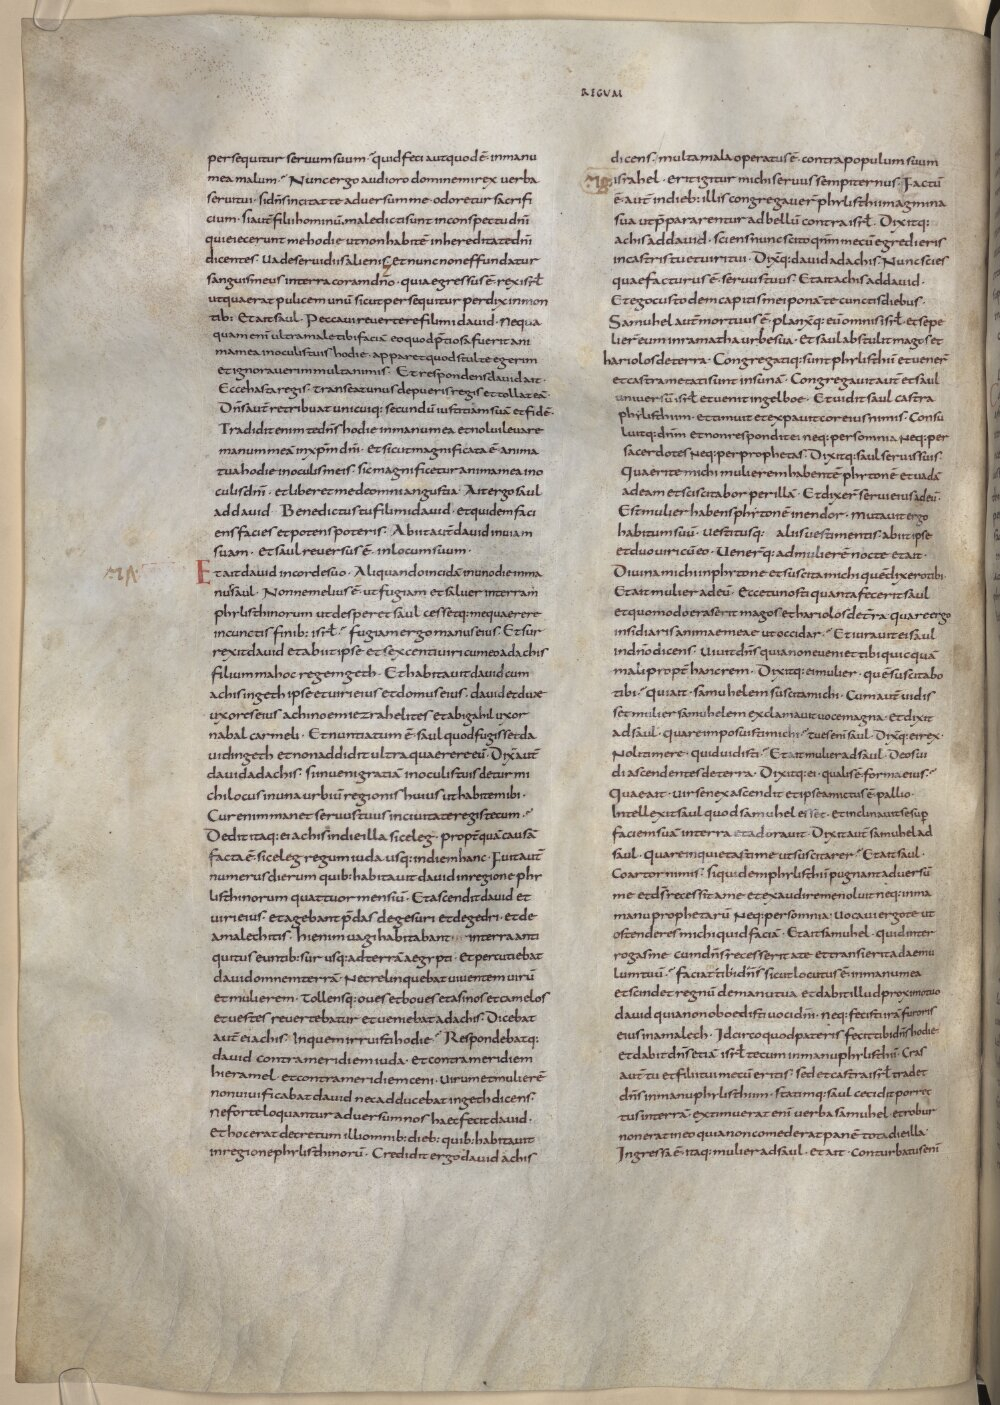 REGUM
persequitur servum suum · quid feci aut quod ē · in manu
mea malum · Nunc ergo audi oro domine mi rex verba
servi tui · si dn̄s incitat te adversum me · odoretur sacrifi
cium · si aut̄ filii hominū · maledicti sunt in conspectu dn̄i
qui eiecerunt me hodie ut non habitē in hereditate dn̄i
dicentes · Vade servi diis alienis · Et nunc non effundatur
sanguis meus in terra coram dn̄o · quia egressus ē · rex isrl̄
ut quaerat pulicem unū sicut persequitur perdix in mon
tib: Et ait saul · Peccavi revertere fili mi david · Nequa
quam eni ultra male tibi faciā eo quod p̄tiosa fuerit ani
ma mea in oculis tuis hodie · apparet quod stulte egerim
et ignoraverim multa nimis · Et respondens david ait ·
Ecce hasta regis · transeat unus de pueris regis et tollat eā ·
Dn̄s aut̄ retribuat unicuiq: secundū iustitiam suā et fidē ·
Tradidit enim te dn̄s hodie in manu mea et nolui levare
manum meā in xp̄m dn̄i · Et sicut magnificata ē · anima
tua hodie in oculis meis · sic magnificetur anima mea in o
culis dn̄i · et liberet me de omni angustia · Ait ergo saul
ad david · Benedictus tu fili mi david · et quidem faci
ens facies et potens poteris · Abiit aut̄ david in viam
suam · et saul reversus ē · in locum suum ·
Et ait david in corde suo · Aliquando incidā in uno die in ma
nu saul · Nonne melius ē · ut fugiam et salver in terram
phylisthinorum ut desperet saul cessetq: me quaerere
in cunctis finib: isrl̄ · fugiam ergo manus eius · Et sur
rexit david et abiit ipse et sexcenti viri cum eo ad achis
filium mahoc regem geth · Et habitavit david cum
achis in geth ipse et viri eius et domus eius · david et duae
uxores eius achinoem iezrahelites et abigahil uxor
nabal carmeli · Et nuntiatum ē · saul quod fugisset da
vid in geth et non addidit ultra quaerere eū · Dix̄ aut̄
david ad achis · si inveni gratiā in oculis tuis detur mi
chi locus in una urbiū regionis huius ut habitem ibi ·
Cur enim manet servus tuus in civitate regis tecum ·
Dedit itaq: ei achis in die illa siceleg · propt̄ quā causā
facta ē · siceleg regum iuda usq: in diem hanc · Fuit aut̄
numerus dierum quib: habitavit david in regione phy
listhinorum quattuor mensiū · Et ascendit david et
viri eius · et agebant p̄das de gesuri et de gedri · et de
amalechitis · hi enim vagi habitabant in terra anti
quitus euntib: sur usq: ad terrā aegypti · Et percutiebat
david omnem terrā · Nec relinquebat viventem virū
et mulierem · Tollensq: oves et boves et asinos et camelos
et vestes revertebatur et veniebat ad achis · Dicebat
aut̄ ei achis · In quem irruisti hodie · Respondebatq:
david contra meridiem iuda · et contra meridiem
hieramel · et contra meridiem ceni · Virum et mulierē
non vivificabat david nec adducebat in geth dicens ·
Ne forte loquantur adversum nos haec fecit david ·
et hoc erat decretum illi omnib: dieb: quib: habitavit
in regione phylisthinorū · Credidit ergo david achis
dicens · multa mala operatus ē · contra populum suum
israhel · erit igitur michi servus sempiternus · Factū
ē · aut̄ in dieb: illis congregaver̄ phylisthiim agmina
sua ut p̄pararentur ad bellū contra isrl̄ · Dixitq:
achis ad david · sciens nunc scito qn̄m mecū egredieris
in castris tu et viri tui · Dix̄q: david ad achis · Nunc scies
quae facturus ē · servus tuus · Et ait achis ad david ·
Et ego custodem capitis mei ponā te cunctis diebus ·
Samuhel aut̄ mortuus ē · planx̄q: eū omnis isrl̄ · et sepe
lier̄ eum in ramatha urbe sua · Et saul abstulit magos et
hariolos de terra · Congregatiq: sunt phylisthii et vener̄
et castrametati sunt in sunā · Congregavit aut̄ et saul
universū isrl̄ et venit in gelboe · Et vidit saul castra
phylisthiim · et timuit et expavit cor eius nimis · Consu
luitq: dn̄m et non respondit ei neq: per somnia neq: per
sacerdotes neq: per prophetas · Dixitq: saul servis suis ·
Quaerite michi mulierem habentē phytonē et vadā
ad eam et sciscitabor per illā · Et dixer̄ servi eius ad eū ·
Est mulier habens phytonē in endor · Mutavit ergo
habitum suū · vestitusq: aliis vestimentis · abiit ipse
et duo viri cū eo · Vener̄q: ad mulierē nocte et ait ·
Divina michi in phytone et suscita michi quē dixero tibi ·
Et ait mulier ad eū · Ecce tu nosti quanta fecerit saul
et quomodo eraserit magos et hariolos de t̄ra · quare ergo
insidiaris animae meae ut occidar · Et iuravit ei saul
in dn̄o dicens · Vivit dn̄s quia non eveniet tibi quicquā
mali propt̄ hanc rem · Dixitq: ei mulier · quē suscitabo
tibi · qui ait · samuhelem suscita michi · Cum aut̄ vidis
set mulier samuhelem exclamavit voce magna · et dixit
ad saul · quare imposuisti michi · tu es eni saul · Dix̄q: ei rex
Noli timere · quid vidisti · Et ait mulier ad saul · Deos vi
di ascendentes de terra · Dixitq: ei · qualis ē · forma eius ·
Quae ait · vir senex ascendit et ipse amictus ē pallio ·
Intellexit saul quod samuhel esset · et inclinavit se sup
faciem suā in terra et adoravit · Dixit aut̄ samuhel ad
saul · Quare inquietasti me ut suscitarer · Et ait saul ·
Coartor nimis · siquidem phylisthii pugnant adversū
me et d̄s recessit a me et exaudire me noluit neq: in ma
manu prophetarū neq: per somnia · vocavi ergo te ut
ostenderes michi quid faciā · Et ait samuhel · quid inter
rogas me cum dn̄s recesserit a te et transierit ad aemu
lum tuū · faciat tibi dn̄s sicut locutus ē in manu mea
et scindet regnū de manu tua et dabit illud proximo tuo
david quia non oboedisti voci dn̄i · neq: fecisti irā furoris
eius in amalech · Idcirco quod pateris fecit tibi dn̄s hodie ·
et dabit dn̄s etiā isrl̄ tecum in manu phylisthii · Cras
aut̄ tu et filii tui mecū eritis · sed et castra isrl̄ tradet
dn̄s in manu phylisthiim · statimq: saul cecidit porrec
tus in terrā · extimuerat eni verba samuhel · et robur
non erat in eo quia non comederat panē tota die illa ·
Ingressa ē · itaq: mulier ad saul · et ait · Conturbatus eni